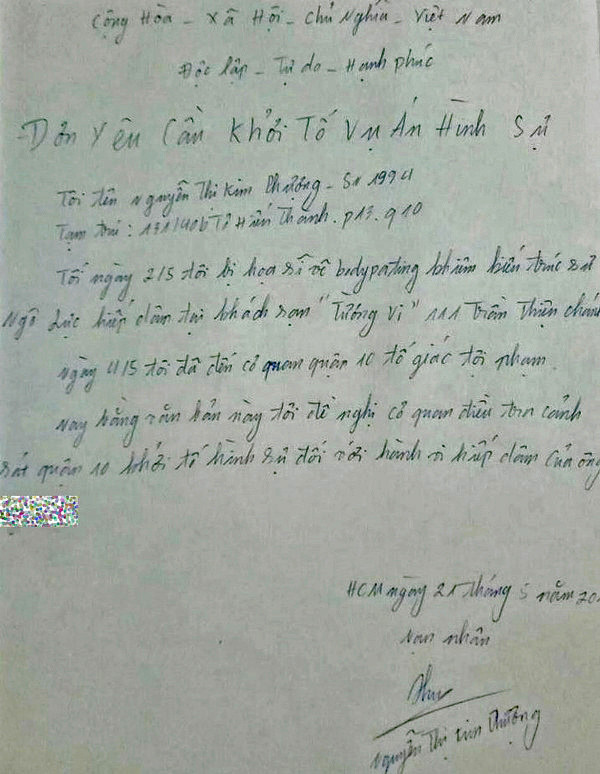 Cộng Hòa - Xã Hội - Chủ Nghĩa - Việt Nam
Độc lập - Tự do - Hạnh phúc
-Đơn Yêu Cần Khởi Tố Vụ Án Hình Sự
Tôi tên Nguyễn Thị Kim Phượng - Sn 1994
Tạm trú : 131/40b Tô Hiến Thành. p13. q10
Tối ngày 2/5 tôi bị họa sĩ vẽ bodypating khiêm kiến trúc sư
Ngô Lực hiếp dâm tại khách sạn "Tường Vi" 111 trần Thiện chánh
ngày 4/5 tôi đã đến cơ quan quận 10 tố giác tội phạm.
nay bằng văn bản này tôi đề nghị cơ quan điều tra cảnh
sát quận 10 khởi tố hình sự đối với hành vi hiếp dâm của ông
HCM ngày 21 tháng 5 năm 20
nạn nhân
Nguyễn Thị Kim Phượng